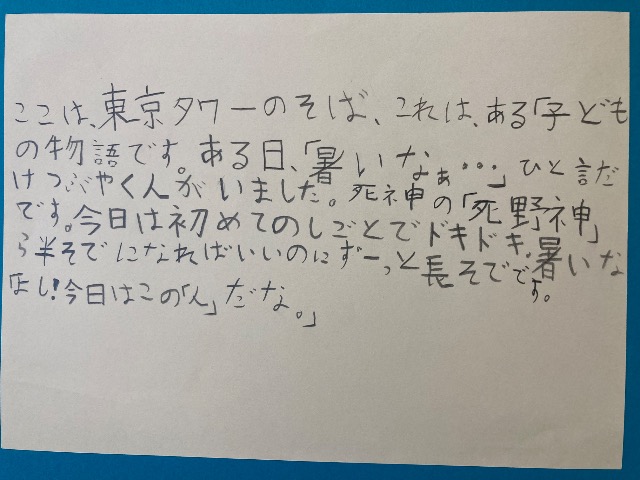 ここは、東京タワーのそば、これは、ある「子ども
の物語です。ある日、「暑いなぁ…」ひと言だ
けつぶやく人がいました。死神の「死野神」
です。今日は初めてのしごとでドキドキ。暑いな
ら半そでになればいいのにずーっと長そでです。
「よし!今日はこの「人」だな。」